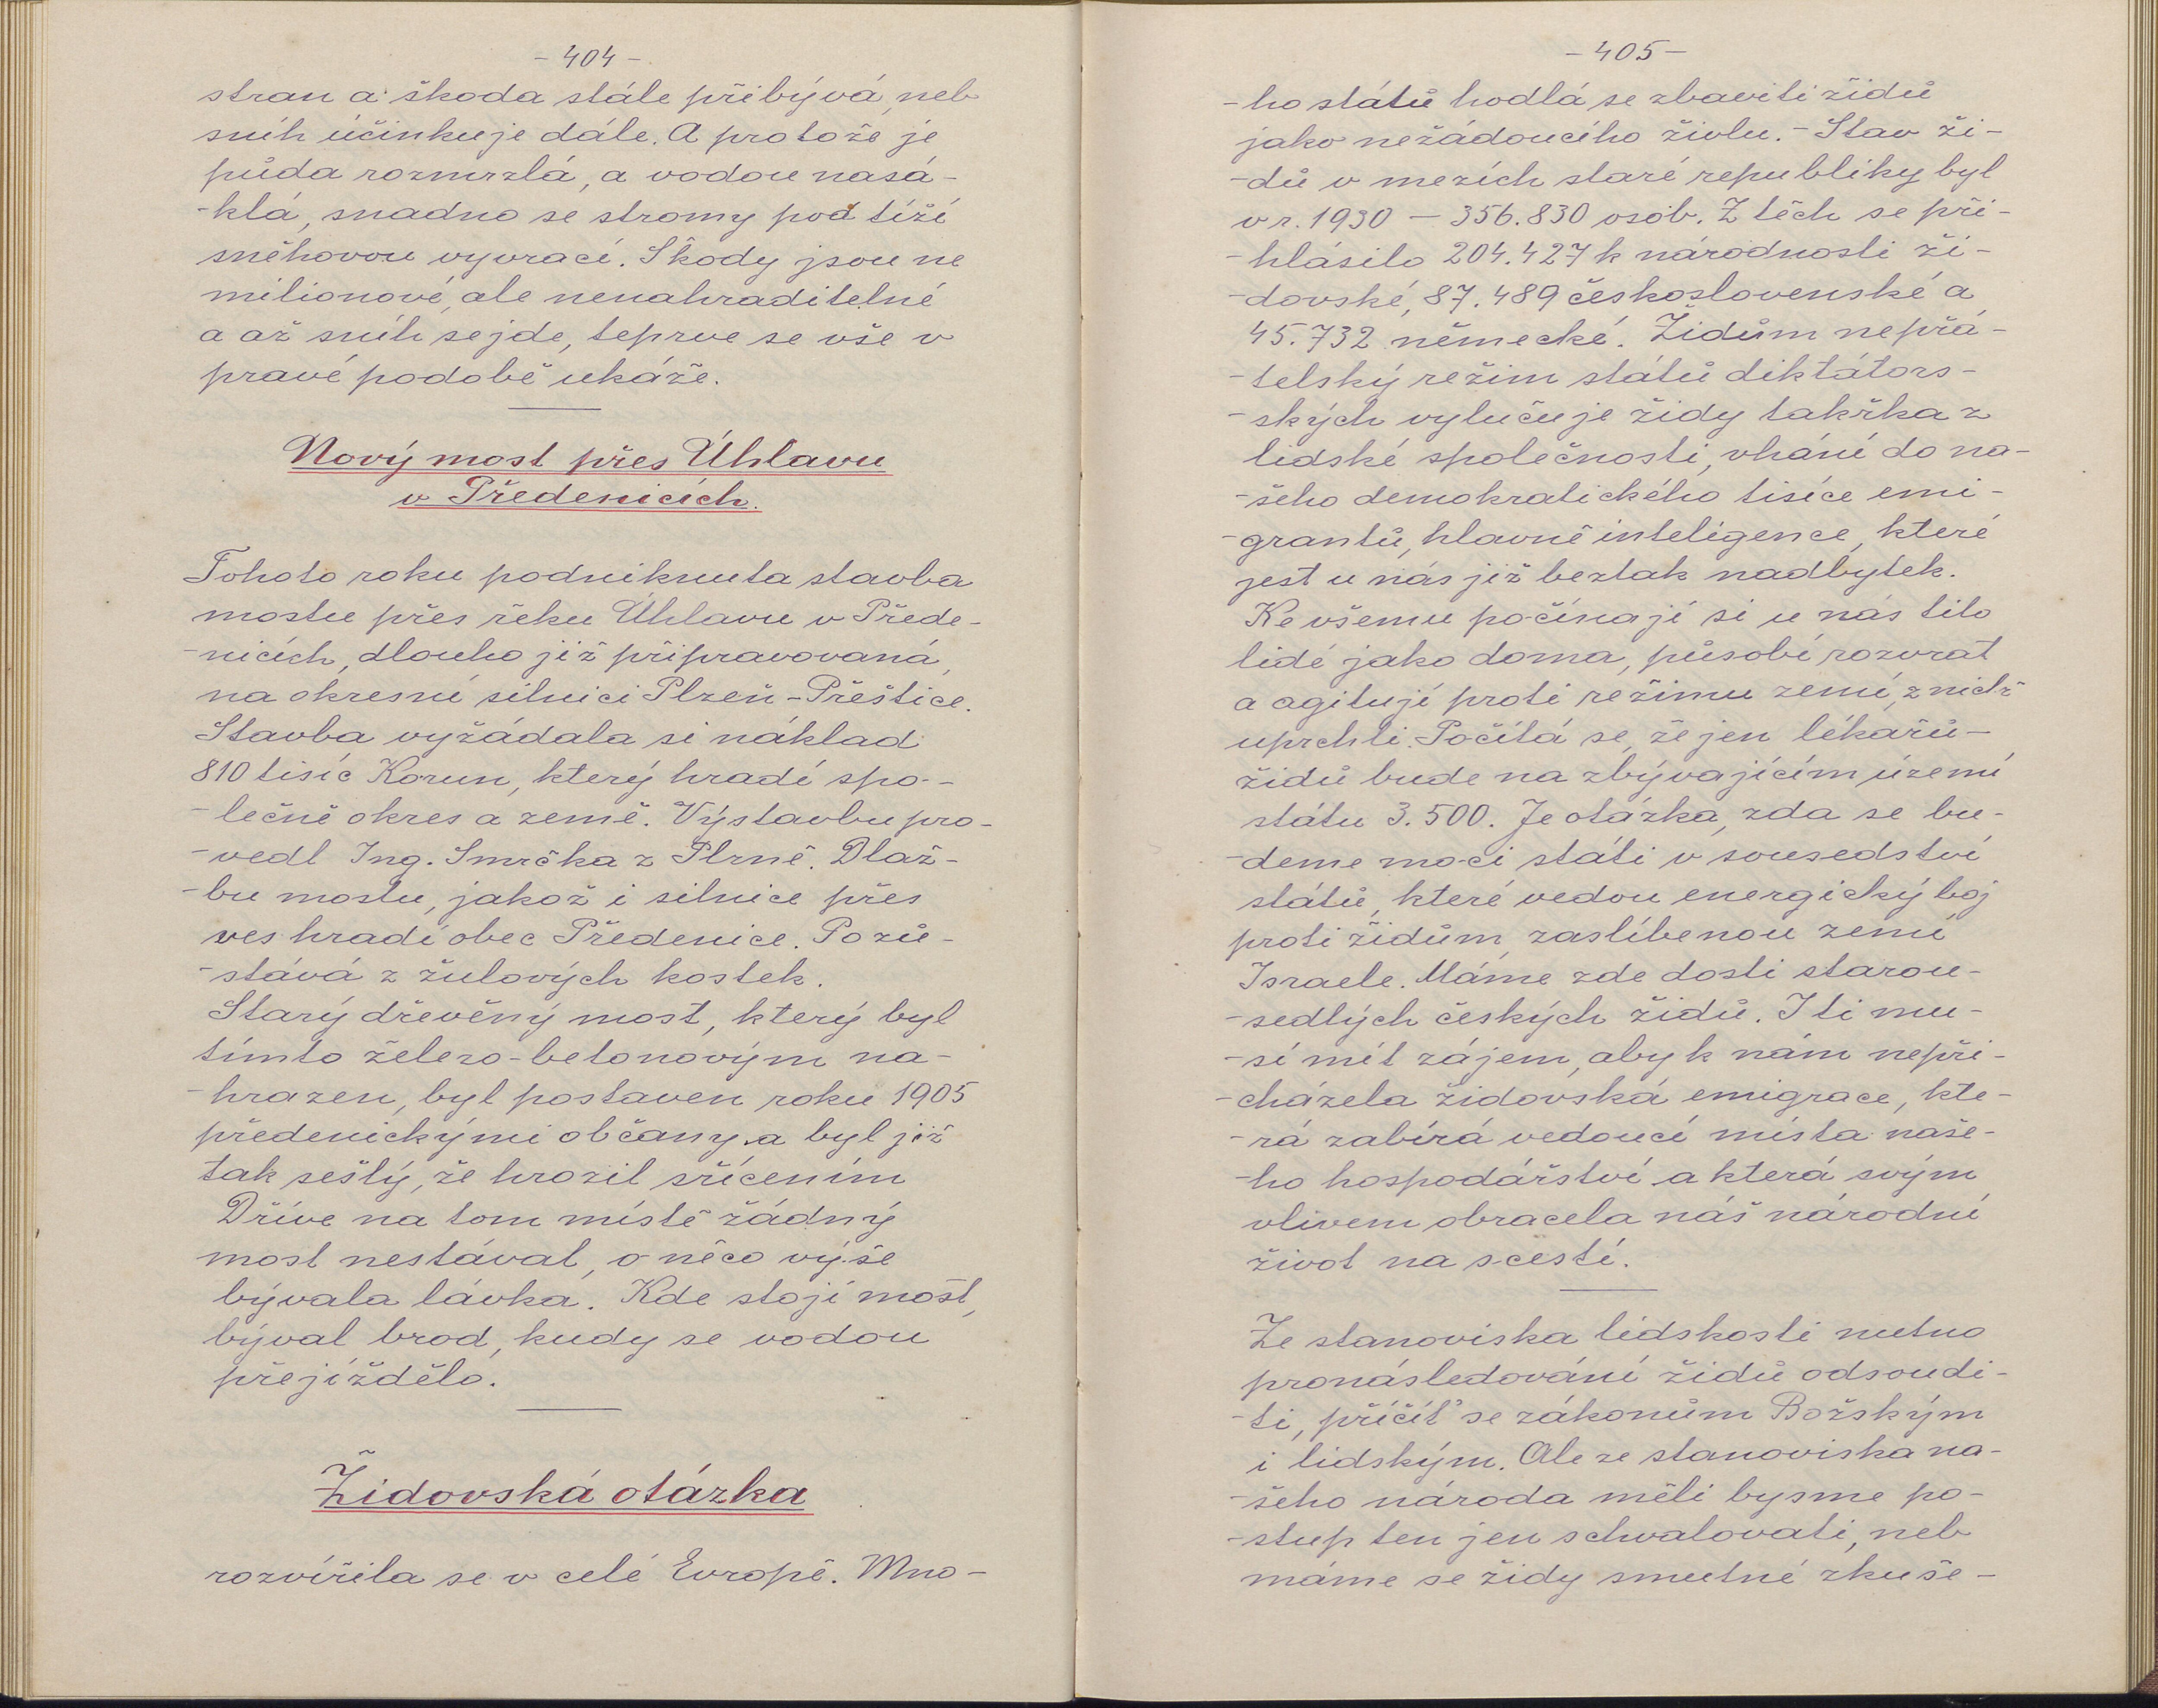 - 404 -
stran a škoda stále přibývá, neb
sníh účinkuje dále. A protože je
půda rozmrzlá, a vodou nasá-
-klá, snadno se stromy pod tíží
sněhovou vyvrací. Škody jsou ne
milionové, ale nenahraditelné
a až sníh sejde, teprve se vše v
pravé podobě ukáže.
Nový most přes Úhlavu
v Předenicích.
Tohoto roku podniknuta stavba
mostu přes řeku Úhlavu v Přede-
-nicích, dlouho již připravovaná,
na okresní silnici Plzeň-Přeštice.
Stavba vyžádala si náklad
810 tisíc Korun, který hradí spo-
-lečně okres a země. Výstavbu pro-
-vedl Ing. Smrčka z Plzně. Dlaž-
-bu mostu, jakož i silnice přes
ves hradí obec Předenice. Pozů-
-stává z žulových kostek.
Starý dřevěný most, který byl
tímto železo-betonovým na-
-hrazen, byl postaven roku 1905
předenickými občany a byl již
tak sešlý, že hrozil sřícením
Dříve na tom místě žádný
most nestával, o něco výše
bývala lávka. Kde stojí most,
býval brod, kudy se vodou
přejíždělo.
Židovská otázka
rozvířila se v celé Evropě. Mno-
- 405 -
-ho států hodlá se zbaviti židů
jako nežádoucího živlu. - Stav ži-
-dů v mezích staré republiky byl
v r. 1930 — 356.830 osob. Z těch se při-
-hlásilo 204.427 k národnosti ži-
-dovské, 87.489 československé a
45.732 německé. Židům nepřá-
-telský režim států diktátors-
-ských vylučuje židy takřka z
lidské společnosti, vhání do na-
-šeho demokratického tisíce emi-
-grantů, hlavně inteligence, které
jest u nás již beztak nadbytek.
Ke všemu počínají si u nás tito
lidé jako doma, působí rozvrat
a agitují proti režimu zemí, z nichž
uprchli. Počítá se, že jen lékařů-
židů bude na zbývajícím území
státu 3.500. Je otázka, zda se bu-
-deme moci státi v sousedství
států, které vedou energický boj
proti židům, zaslíbenou zemí
Israele. Máme zde dosti starou-
-sedlých českých židů. I ti mu-
-sí mít zájem, aby k nám nepři-
-cházela židovská emigrace, kte-
-rá zabírá vedoucí místa naše-
-ho hospodářství a která svým
vlivem obracela náš národní
život na scestí.
Ze stanoviska lidskosti nutno
pronásledování židů odsoudi-
-ti, příčíť se zákonům Božským
i lidským. Ale ze stanoviska na-
-šeho národa měli bysme po-
-stup ten jen schvalovati, neb
máme se židy smutné zkuše-